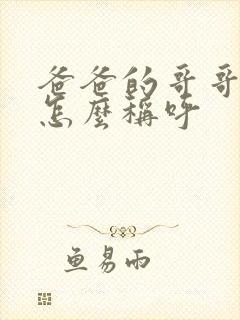 爸爸的哥哥
怎麼稱呼
鱼易雨